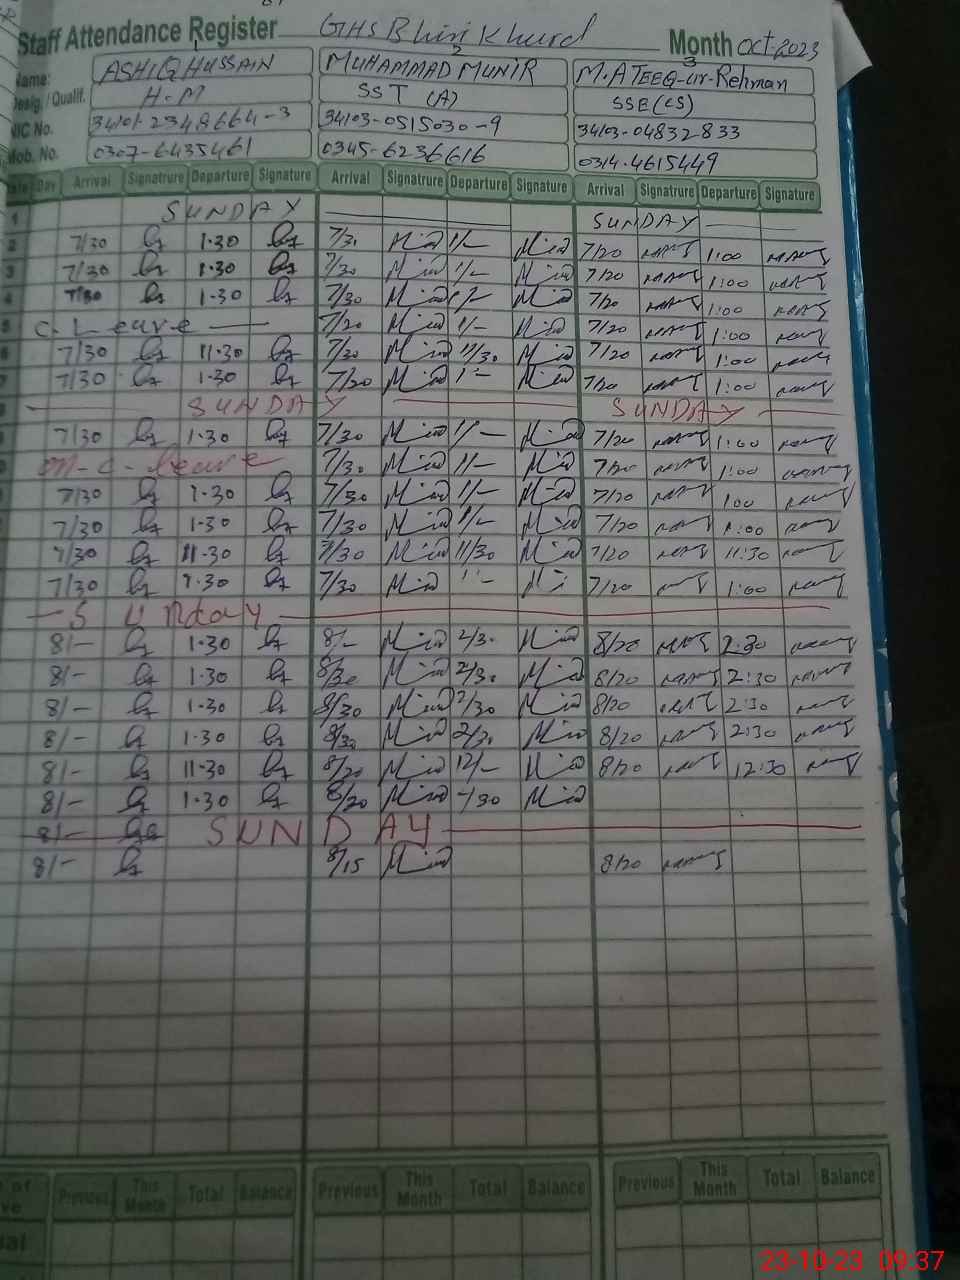 Staff Attendance Register GHS Bhiri Khurd Month Oct-2023
1 2 3
Name: ASHIQ HUSSAIN MUHAMMAD MUNIR M. ATEEQ-ur-Rehman
Desig. / Qualif. H-M SST (A) SSE (CS)
NIC No. 34101-2348664-3 34103-0515030-9 34103-04832833
Mob. No. 0307-6435461 0345-6236616 0314-4615449
Date Day Arrival Signatrure Departure Signature Arrival Signatrure Departure Signature Arrival Signatrure Departure Signature
1 SUNDAY SUNDAY
2 7/30 1.30 7/30 1/- 7/20 1:00
3 7/30 1.30 7/30 1/- 7/20 1:00
4 7/30 1.30 7/30 1/- 7/20 1:00
5 C. Leave 7/20 1/- 7/20 1:00
6 7/30 11.30 7/30 11/30 7/20 1:00
7 7/30 1.30 7/20 1/- 7/20 1:00
SUNDAY SUNDAY
7/30 1.30 7/30 1/- 7/20 1:00
C- Leave 7/30 1/- 7/20 1:00
7/30 1.30 7/30 1/- 7/20 1:00
7/30 1.30 7/30 1/- 7/20 1:00
7/30 11.30 7/30 11/30 7/20 11:30
7/30 1.30 7/30 7/20 1:00
Sunday
8/- 1.30 8/- 2/30 8/20 2:30
8/- 1.30 8/30 2/30 8/20 2:30
8/- 1.30 8/30 2/30 8/20 2:30
8/- 1.30 8/30 2/30 8/20 2:30
8/- 11.30 8/20 12/- 8/20 12:30
8/- 1.30 8/20 /30
8/- SUNDAY
8/- 8/15 8/20
Previous This Month Total Balance Previous This Month Total Balance Previous This Month Total Balance
23-10-23 09.37